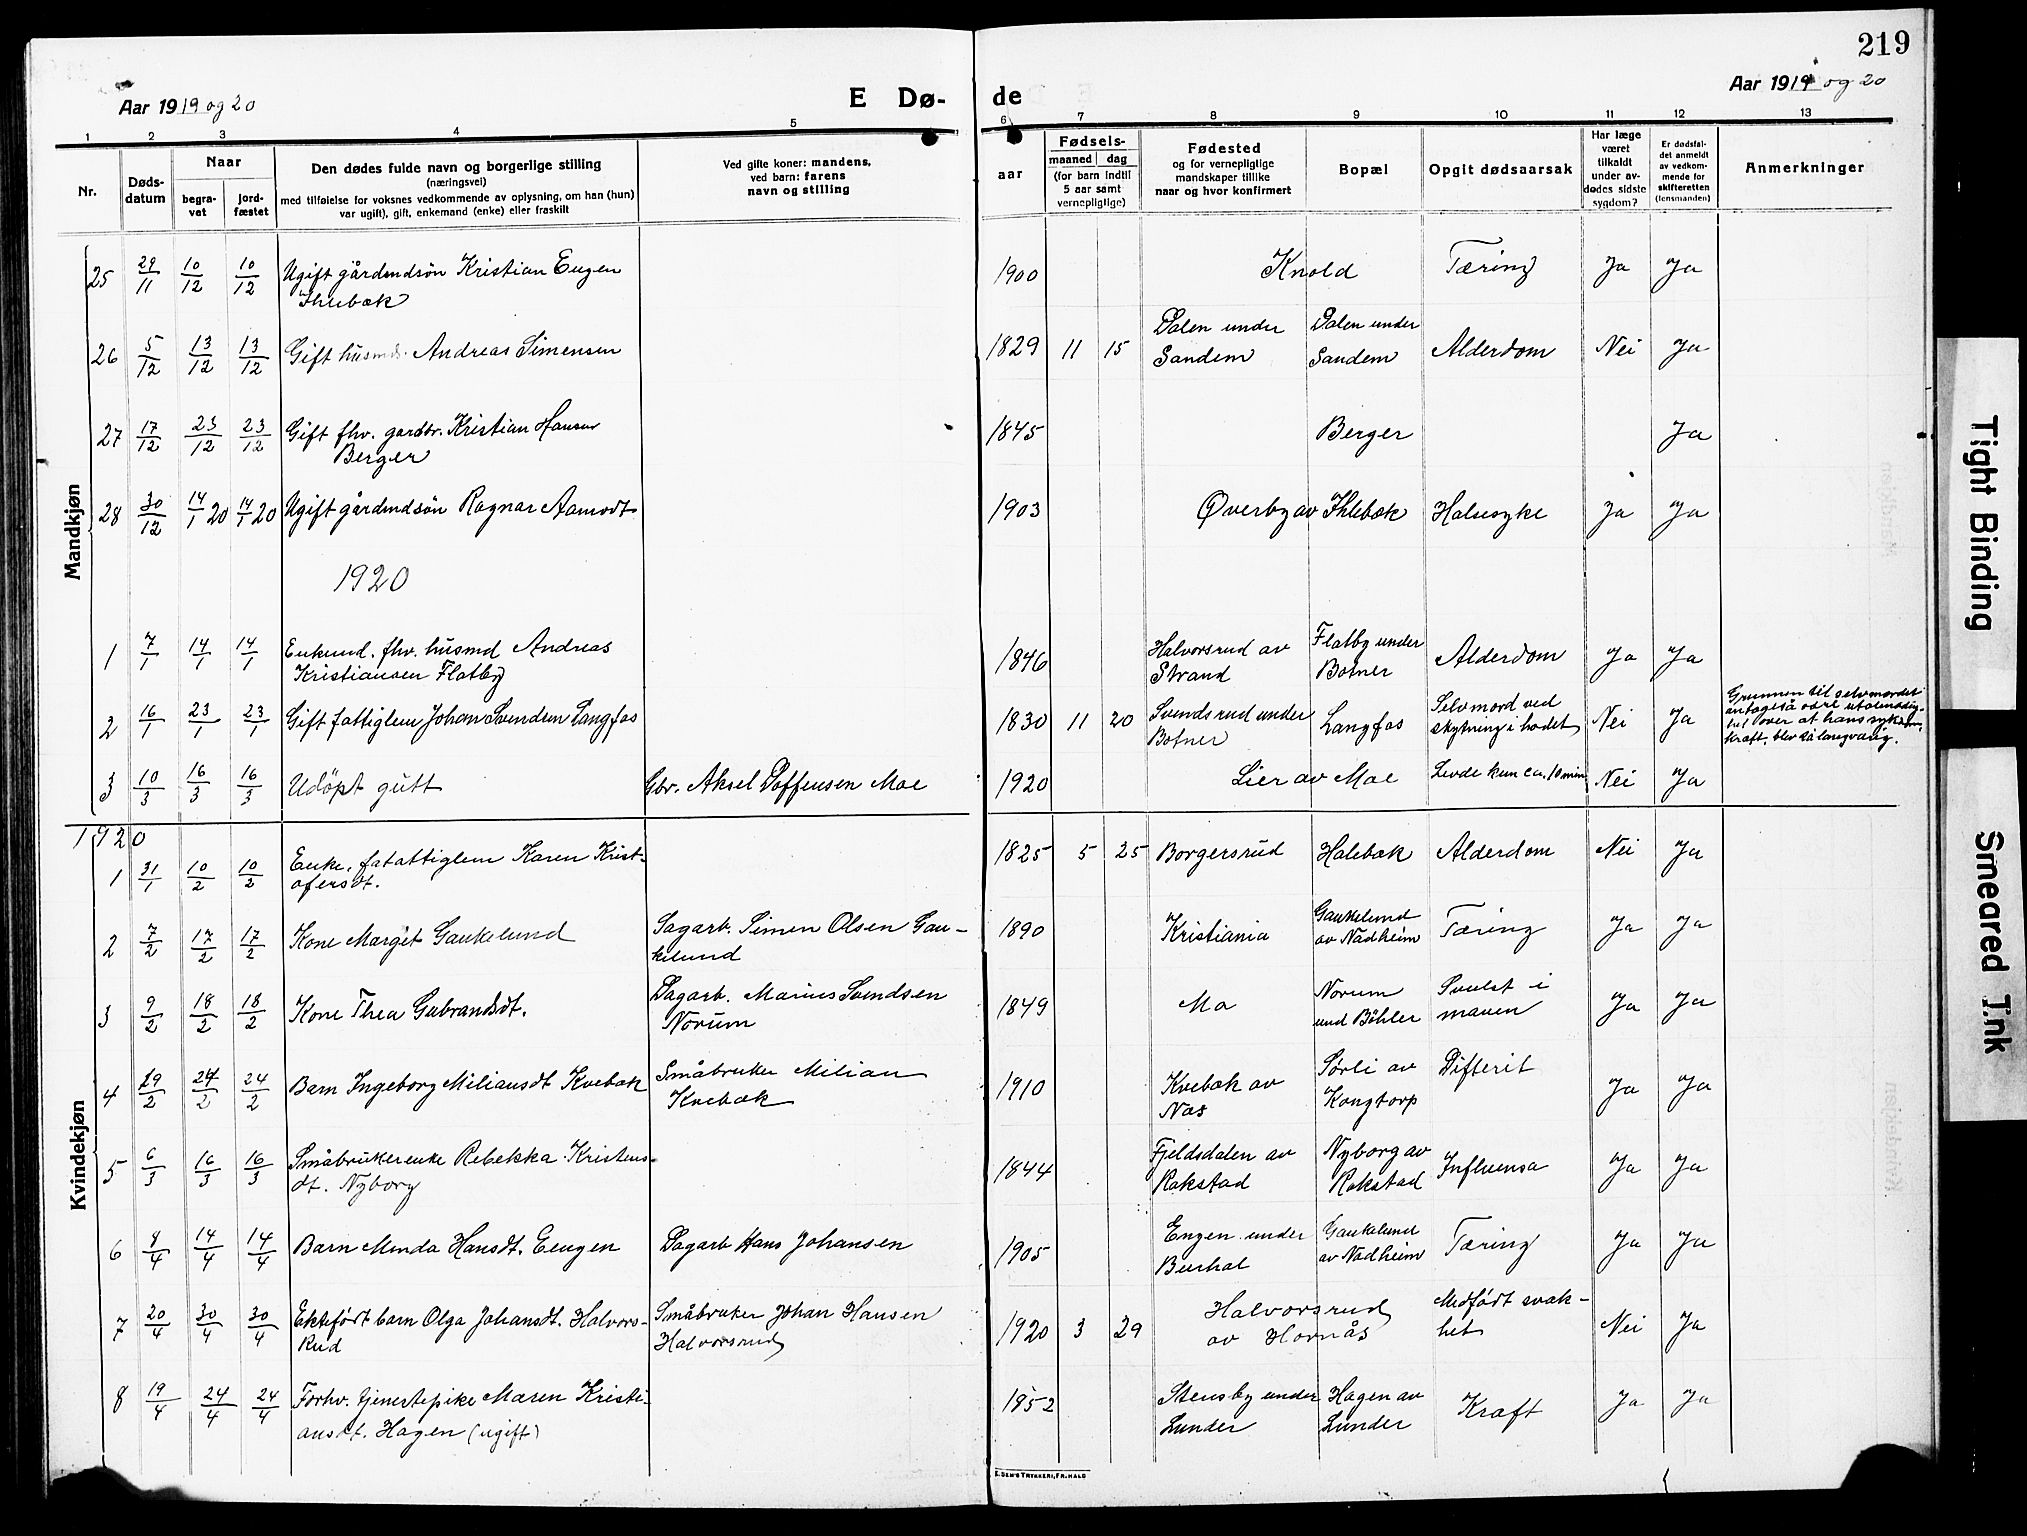 219
Aar 1919 og 20
E Dø-
de
Aar 1919 og 20
1 2 3 4 5 6 7 8 9 10 11 12 13
Nr.
Døds-
datum
Naar
begra-
vet
jord-
fæstet
Den dødes fulde navn og borgerlige stilling
(næringsvei)
med tilføielse for voksnes vedkommende av oplysning, om han (hun)
var ugift), gift, enkemand (enke) eller fraskilt
Ved gifte koner: mandens,
ved barn: farens
navn og stilling
aar
Fødsels-
maaned dag
(for barn indtil
5 aar samt
vernepligtige)
Fødested
og for vernepligtige
mandskaper tillike
naar og hvor konfirmert
Bopæl
Opgit dødsaarsak
Har læge
været
tilkaldt
under av-
dødes sidste
sygdom?
Er dødsfal-
det anmeldt
av vedkom-
mende for
skifteretten
(lensmanden)
Anmerkninger
Mandkjøn
25 29/11 10/12 10/12 Ugift gårdmdsøn Kristian Eugen
Ihlebæk
1900 Knold Tæring Ja Ja
26 5/12 13/12 13/12 Gift husmd. Andreas Simensen
1829 11 15 Dalen under
Sandem
Dalen under
Sandem
Alderdom Nei Ja
27 17/12 23/12 23/12 Gift fhv. gardbr. Kristian Hansen
Berger
1845 Berger Ja
28 30/12 14/1 20 14/1 20 Ugift gårdmdsøn Ragnar Aamodt
1903 Øverby av Ihlebæk Halsesyke Ja Ja
1920
1 7/1 14/1 14/1 Enkemd. fhv. husmd Andreas
Kristiansen Flatby
1846 Halvorsrud av
Strand
Flatby under
Botner
Alderdom Ja Ja
2 16/1 23/1 23/1 Gift fattiglem Johan Svendsen Langfos
1830 11 20 Svendsrud under
Botner
Langfos
Selvmord ved
skytning i hodet
Nei Ja
Grunnen til selvmordet
antages å være utålmodig-
het over at hans syk
kraft, blev så langvarig.
3 10/3 16/3 16/3 Udöpt gutt Gbr. Aksel Toffensen Moe
1920 Lier av Moe Levde kun ca. 10 min Nei Ja
1920
Kvindekjøn
1 31/1 10/2 10/2 Enke, fatattiglem Karen Krist-
ofersdt.
1825 5 25 Borgersrud Halebæk Alderdom Nei Ja
2 7/2 17/2 17/2 Kone Margit Gaukelund Sagarb. Simen Olsen Gau-
kelund
1890 Kristiania Gaukelund
av Nadheim
Tæring Ja Ja
3 9/2 18/2 18/2 Kone Thea Gubrandsdt. Dagarb. Marius Svendsen
Norum
1849 Mo Norum
und Böhler
Svulst i
maven
Ja Ja
4 19/2 24/2 24/2 Barn Ingeborg Miliansdt Kvebæk Småbruker Milian
Kvebæk
1910 Kvebæk av
Næs
Sørli av
Kongtorp
Difterit Ja Ja
5 6/3 16/3 16/3 Småbrukerenke Rebekka Kristens-
dt. Nyborg
1844 Fjeldsdalen av
Rakstad
Nyborg av
Rakstad
Influensa Ja Ja
6 8/4 14/4 14/4 Barn Minda Hansdt. Eengen Dagarb Hans Johansen
1905 Engen under
Burhol
Gaukelund
av Nadheim
Tæring Ja Ja
7 20/4 30/4 30/4 Ektefört barn Olga Johansdt. Halvors-
Rud
Småbruker Johan Hansen
Halvorsrud
1920 3 29 Halvorsrud
av Hornås
Medfödt svak-
het
Nei Ja
8 19/4 24/4 24/4 Forhv. tjenestepike Maren Kristi-
ansdt. Hagen (ugift)
1852 Stensby under
Lunder
Hagen av
Lunder
Kræft Ja Ja
E. SEM'S TRYKKERI, FR.HALD
Tight Binding
Smeared Ink